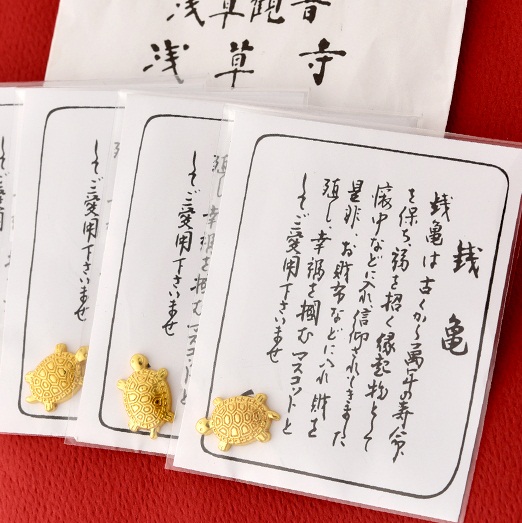 浅草観音
浅草寺
銭亀
銭亀は古くから萬年の寿命
を保ち福を招く縁起物として
懐中などに入れ信仰されてきました
是非、お財布などに入れ財を
殖し、幸福を掴むマスコットと
してご愛用下さいませ
幸福を掴むマスコットと
してご愛用下さいませ
してご愛用下さいませ